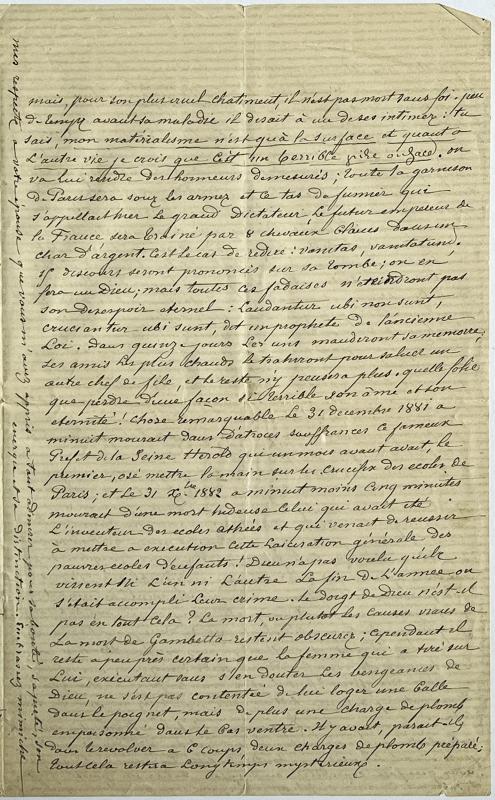 mais, pour son plus cruel chatiment, il n'est pas mort sans foi. peu
de temps avant sa maladie il disait à un de ses intimes: tu
sais, mon matérialisme n'est qu'à la surface et quant à
L'autre vie je crois que c'est un terrible pile ou face. on
va lui rendre des honneurs démesurés; toute la garnison
de Paris sera sous les armes et ce tas de fumier qui
s'appellait hier le grand Dictateur le futur empereur de
la France, sera trainé par 8 chevaux blancs dans un
char d'argent. C'est le cas de redire: vanitas, vanitatum.
15 discours seront prononcés sur sa tombe; on en
fera un Dieu; mais toutes ces fadaises n'éteindront pas
son desespoir eternel: Laudantur ubi non sunt,
cruciantur ubi sunt, dit un prophète de l'ancienne
Loi. Dans quinze jours les uns maudiront sa memoire,
les amis les plus chauds le trahiront pour saluer un
autre chef de file, et le reste n'y pensera plus. quelle folie
que perdre d'une façon si terrible son âme et son
eternité! Chose remarquable le 31 decembre 1881 a
minuit mourait dans d'atroces souffrances ce fameux
Prefet de la Seine Herold qui un mois avant avait, le
premier, osé mettre la main sur les Crucifix des ecoles de
Paris; et le 31 Xbre 1882 a minuit moins cinq minutes
mourait d'une mort hideuse celui qui avait été
L'inventeur des ecoles athées et qui venait de reussir
à mettre a execution cette laicisation générale des
pauvres ecoles d'enfants! Dieu n'a pas voulu qu'ils
vissent ni l'un ni l'autre la fin de l'année ou
s'était accompli leur crime. Le doigt de Dieu n'est-il
pas en tout cela? La mort, ou plutot les causes vraies de
la mort de Gambetta restent obscures; cependant il
reste a peu près certain que la femme qui a tiré sur
Lui, executant sans s'en douter les vengeances de
Dieu, ne s'est pas contentée de lui loger une balle
dans le poignet, mais de plus une charge de plomb
empoisonné dans le bas ventre. Il y avait, parait-il,
dans le revolver a 6 coups, deux charges de plomb préparé;
tout cela restera longtemps mysterieux.
mes respects a votre que vous m'avez